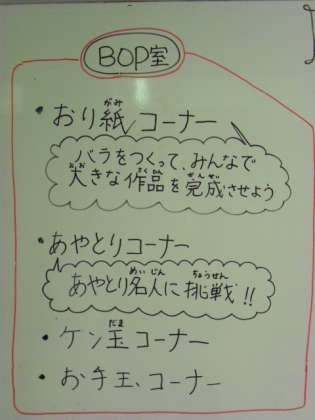 BOP室
・おり紙コーナー
バラをつくって、みんなで
大きな作品を完成させよう
・あやとりコーナー
あやとり名人に挑戦!!
・ケン玉コーナー
・お手玉コーナー